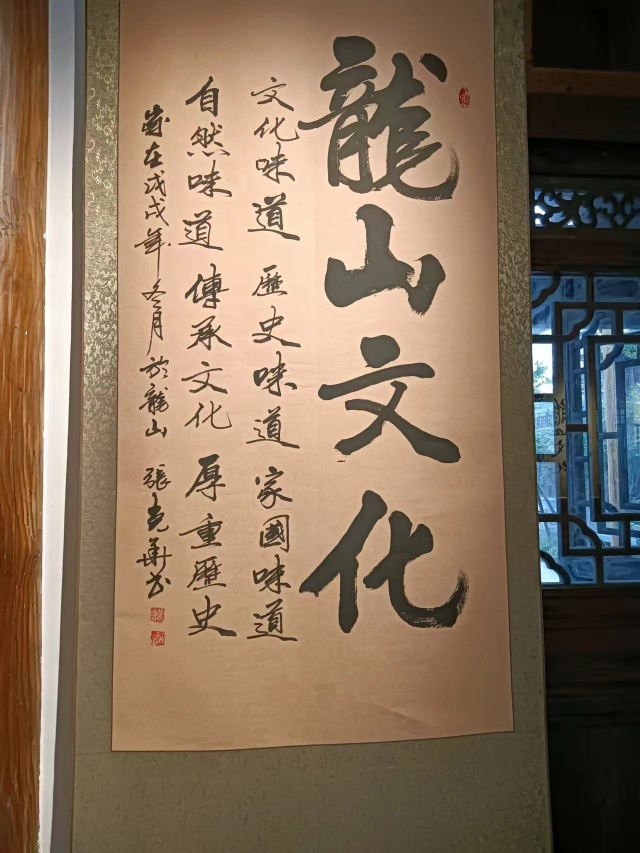 龍山文化
文化味道 歷史味道 家國味道
自然味道 傳承文化 厚重歷史
歲在戊戌年冬月於龍山 張克華書